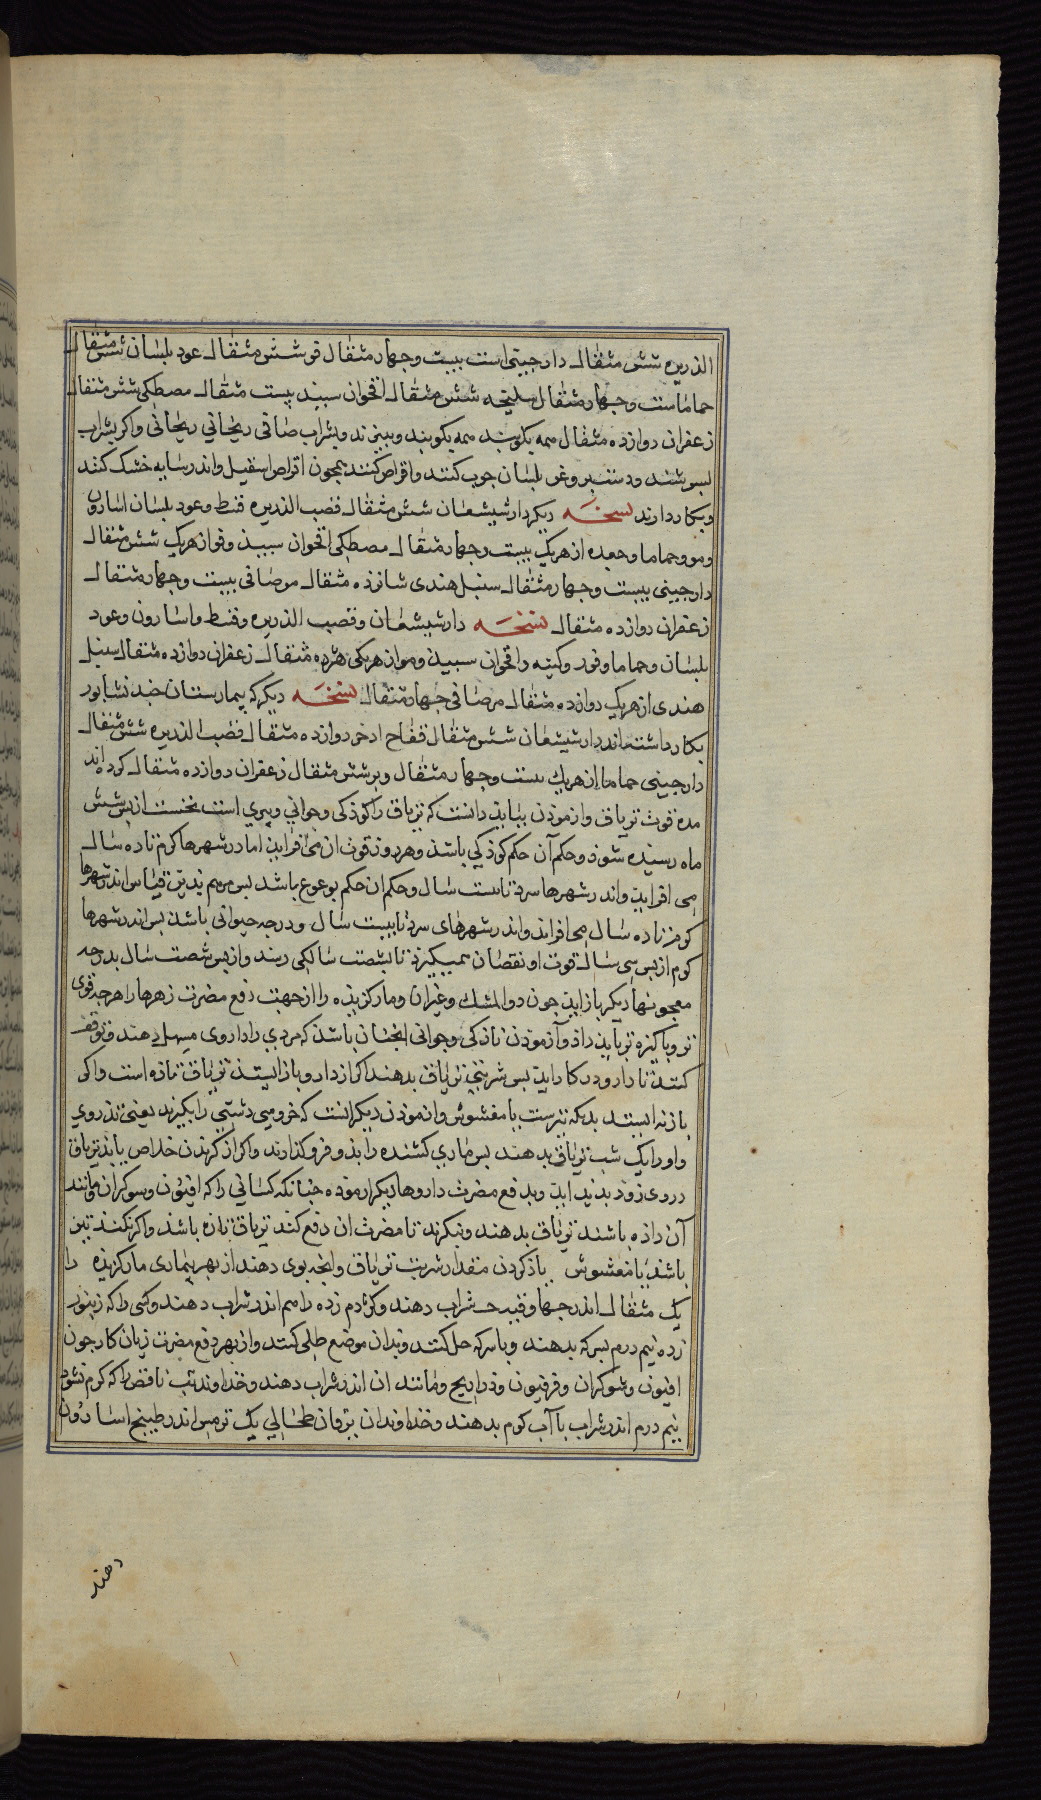 الذریره شش مثقال دارچینی است بیست و چهار مثقال قو شش مثقال عود بلسان شش مثقال
حماما بیست و چهار مثقال سلیخه شش مثقال اقحوان سپید بیست مثقال مصطکی شش مثقال
زعفران دوازده مثقال همه بکوبند همه بکوبند و ببیزند و بشراب صافی ریحانی ریحانی و اکر بشراب
بسرشند و دست بروغن بلسان چرب کنند و اقراص کنند همچون اقراص اسقیل و اندر سایه خشک کنند
و بکار دارند نسخه دیکر دارشیشعان شش مثقال قصب الذریره قسط و عود بلسان اسارون
و مو و حماما و جعده از هریک بیست و چهار مثقال مصطکی اقحوان سپید و فو از هریک شش مثقال
دارچینی بیست و چهار مثقال سنبل هندی شانزده مثقال مر صافی بیست و چهار مثقال
زعفران دوازده مثقال نسخه دارشیشعان و قصب الذریره و قسط و اسارون و عود
بلسان و حماما و فو و کتیه و اقحوان سپید و مو از هریکی هژده مثقال زعفران دوازده مثقال سنبل
هندی از هریک دوازده مثقال مر صافی چهار مثقال نسخه دیکر که بیمارستان جندنشابور
بکار داشته اند دارشیشعان شش مثقال فقاح اذخر دوازده مثقال قصب الذریره شش مثقال
دارچینی حماما از هریک بیست و چهار مثقال و بر شش مثقال زعفران دوازده مثقال کرده اند
مدة قوت تریاق و ازمودن بباید دانست که تریاق را کودکی و جوانی و پیری است نخست از پس شش
ماه رسیده شود و حکم آن حکم کودکی باشد و هر روز قوت ان می افزاید اما در شهرها کرم تا ده سال
می افزاید و اندر شهرها سرد تا بیست سال و حکم ان حکم بوعوع باشد پس هم بدین قیاس اندر شهرها
کرم تا ده سال می افزاید و اندر شهرهای سرد تا بیست سال و درجه جوانی باشد پس اندر شهرها
کرم از پس سی سال قوت او نقصان همیکیرد تا بشصت سالکی رسد و از پس شصت سال بدرجه
معجونها دیکر باز اید چون دواالمشک و غیر ان و مار کزیده را از جهت دفع مضرت زهرها را هرچه قوی
تر و پاکیزه تر باید داد و آزمودن تازکی و جوانی انچنان باشد که مردی را داروی مسهل دهند و توقف
کنند تا دارو در کار اید پس شربتی تریاق بدهند اکر از دارو باز ایستد تریاق تازه است و اکر
باز نه ایستد بدیکه نیرست یا مغشوش و ازمودن دیکر انست که خروسی دشتی را بکیرند یعنی تذروی
و او را یک شب تریاق بدهند پس ماری کشنده را بذو فرو کذارند و اکر از کزیدن خلاص یابد تریاق
در وی زود پدید اید و بدفع مضرت داروها دیکر ازموده چنانکه کسانی را که افیون و شوکران و مانند
آن داده باشند تریاق بدهند و بنکرند تا مضرت ان دفع کند تریاق تازه باشد و اکر نکند تین
باشد یا مغشوش یاد کردن مقدار شربت تریاق و انچه بوی دهند از بهر بیماری مار کزیده را
یک مثقال اندر چهار وقیه شراب دهند و کژدم زده را هم اندر شراب دهند و کسی را که زنبور
زده نیم درم بسرکه بدهند و با سرکه حل کنند و بدان موضع طلی کنند و از بهر دفع مضرت زیان کار چون
افیون و شوکران و فرفیون و ذراریح و مانند ان اندر شراب دهند و خداوند تب نافض را که کرم نشود
نیم درم اندر شراب با آب کرم بدهند و خداوندان یرقان طحالی یک ترمس اندر طبیخ اسارون
دهند